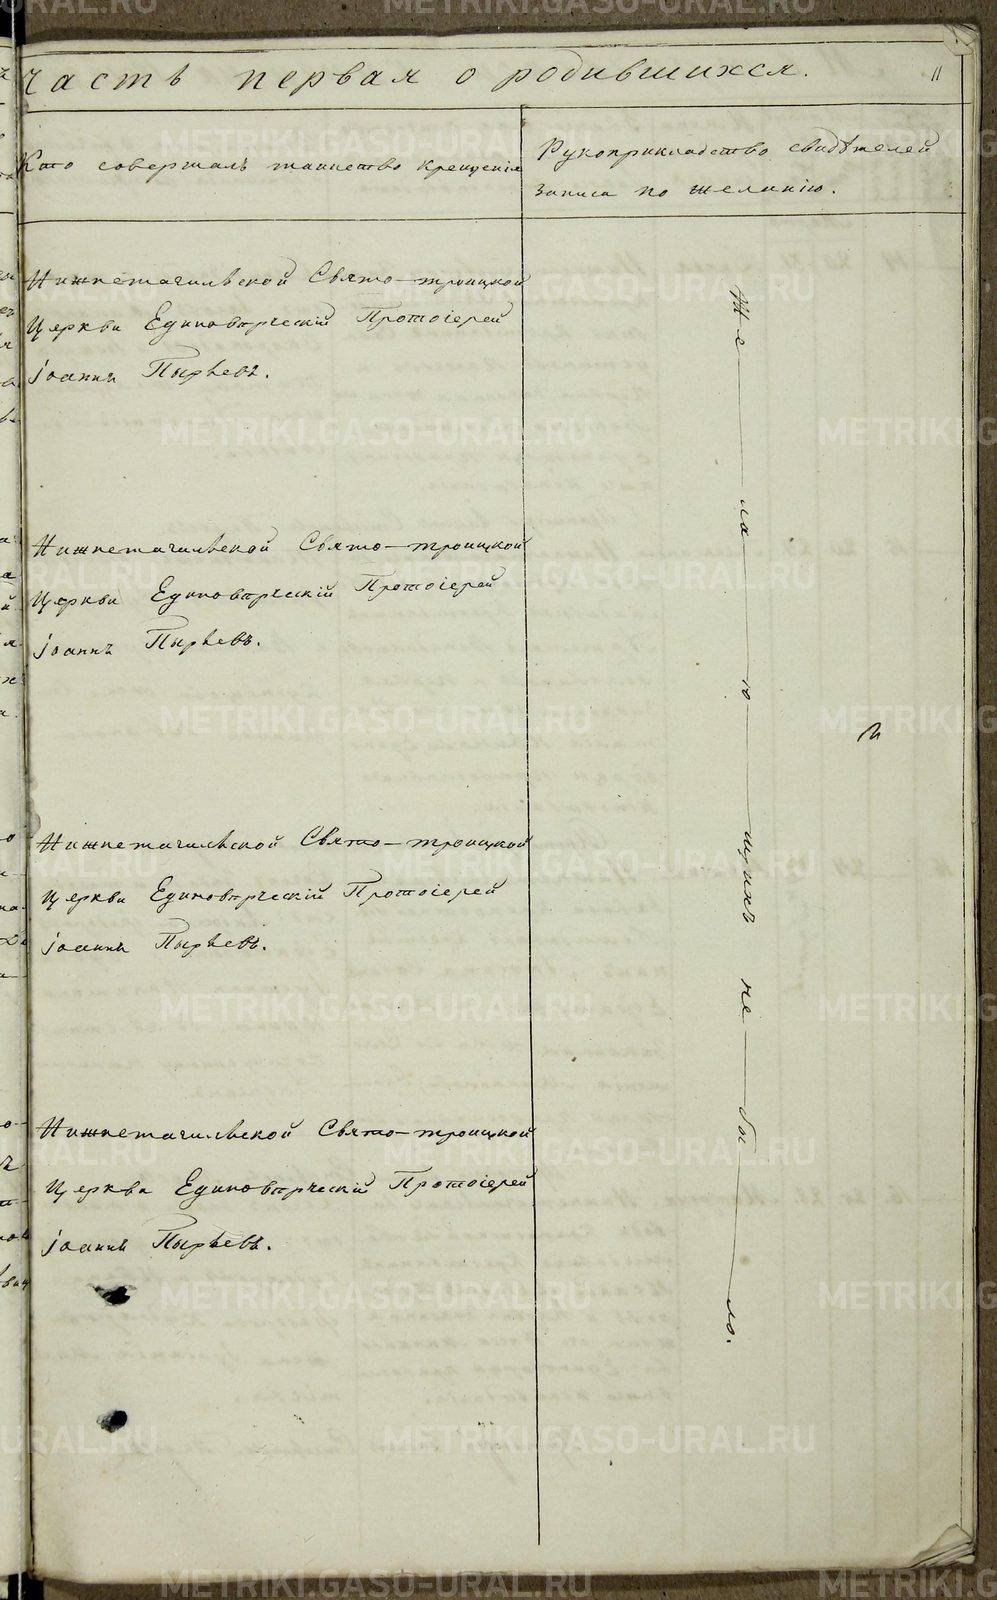 часть первая о родившихся.
11
Кто совершалъ таинство крещенія
Рукоприкладство свидѣтелей
записи по желанію.
Нижнетагильской Свято-троицкой
Церкви Единовѣрческій Протоіерей
Іоаннъ Пырьевъ.
Нижнетагильской Свято-троицкой
Церкви Единовѣрческій Протоіерей
Іоаннъ Пырьевъ.
Нижнетагильской Свято-троицкой
Церкви Единовѣрческій Протоіерей
Іоаннъ Пырьевъ.
Нижнетагильской Свято-троицкой
Церкви Единовѣрческій Протоіерей
Іоаннъ Пырьевъ.
Же—ла—ю—щихъ не—бы—ло.
METRIKI.GASO-URAL.RU